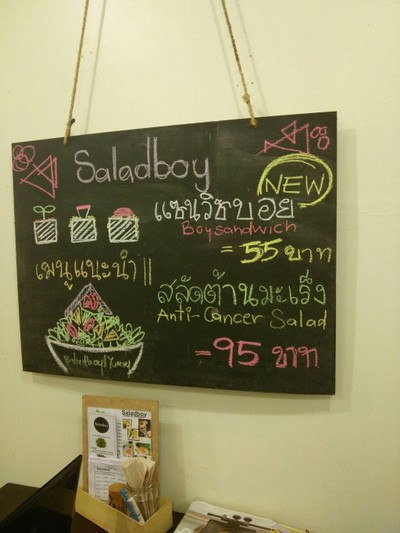 Saladboy
NEW
แซนวิชบอย
Boysandwich
= 55 บาท
เมนูแนะนำ ||
สลัดต้านมะเร็ง
Anti-Cancer Salad
= 95 บาท
Saladboy